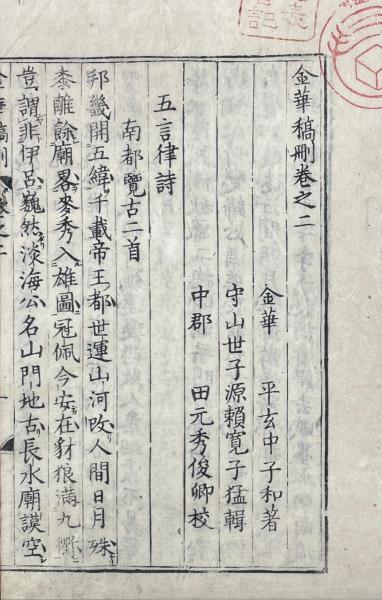 金華稿刪卷之二
金華　平玄中子和著
守山世子源賴寬子猛輯
中郡　田元秀俊卿校
五言律詩
南都覽古二首
邦畿開五緯千載帝王都世運山河改人間日月殊
黍離餘廟畧麥秀入雄圖冠佩今安在豺狼滿九衢
豈謂非伊呂巍然淡海公名山門地古長水廟謨空